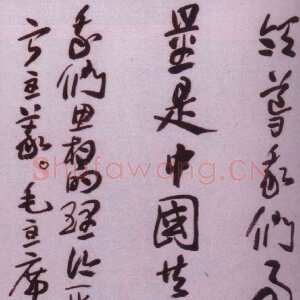 领导我们事
量是中国共
我们思想的理论基
宁主义。毛主席
Shufawang.CN